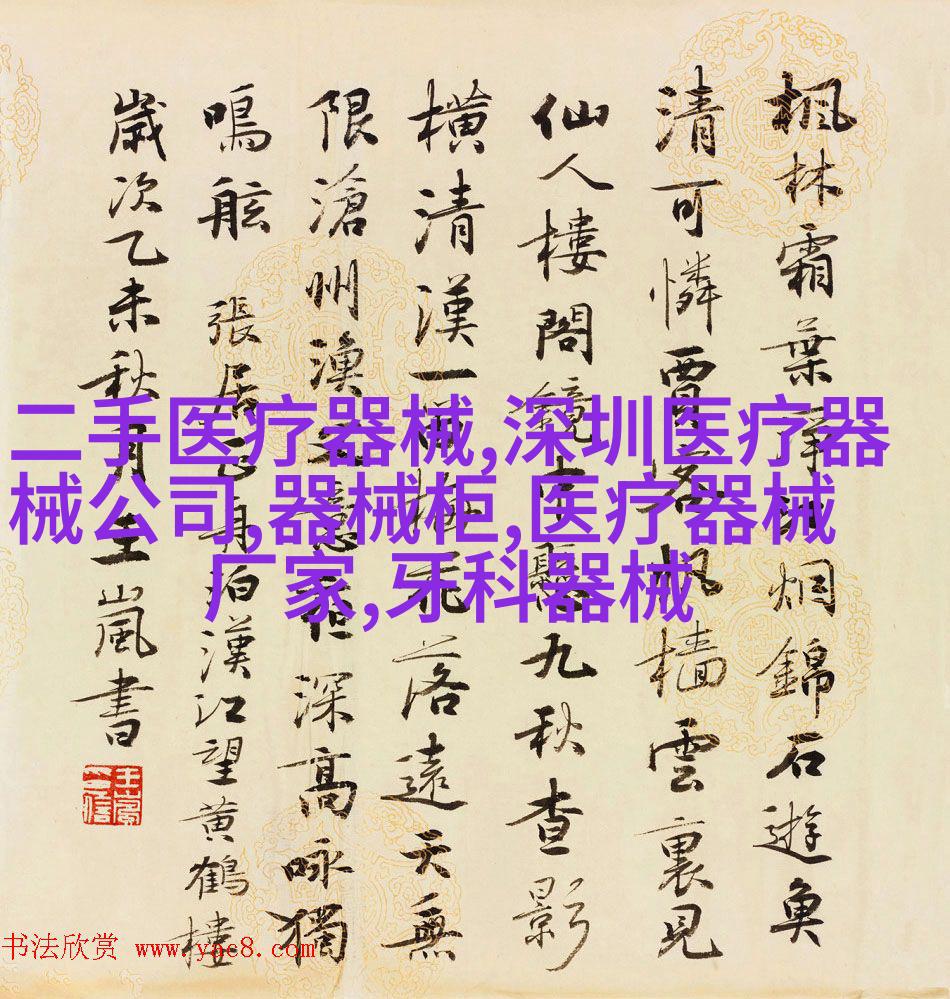 楓林霜葉淨江烟錦石遊魚
清可憐賈客帆檣雲裏見
仙人樓閣鏡中懸九秋查影
橫清漢一笛梅花落遠天無
限滄州漁父意夜深高詠獨
鳴舷 張居正舟泊漢江望黄鶴樓
歲次乙未秋月王嵐書
二手医疗器械,深圳医疗器
械公司,器械柜,医疗器械
厂家,牙科器械
书法欣赏 www.yac8.com